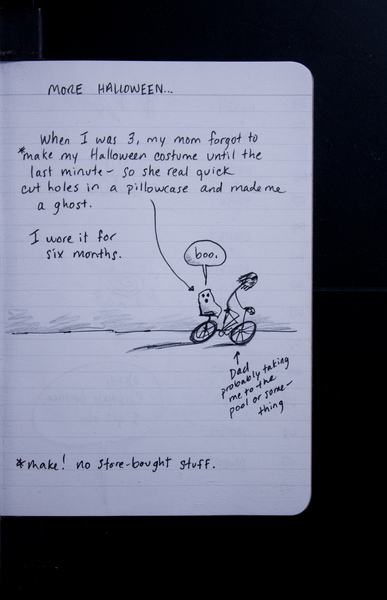 MORE HALLOWEEN...
When I was 3, my mom forgot to
*make my Halloween costume until the
last minute - so she real quick
cut holes in a pillowcase and made me
a ghost.
I wore it for
six months.
boo.
Dad
probably taking
me to the
pool or some-
thing
*make! no store-bought stuff.